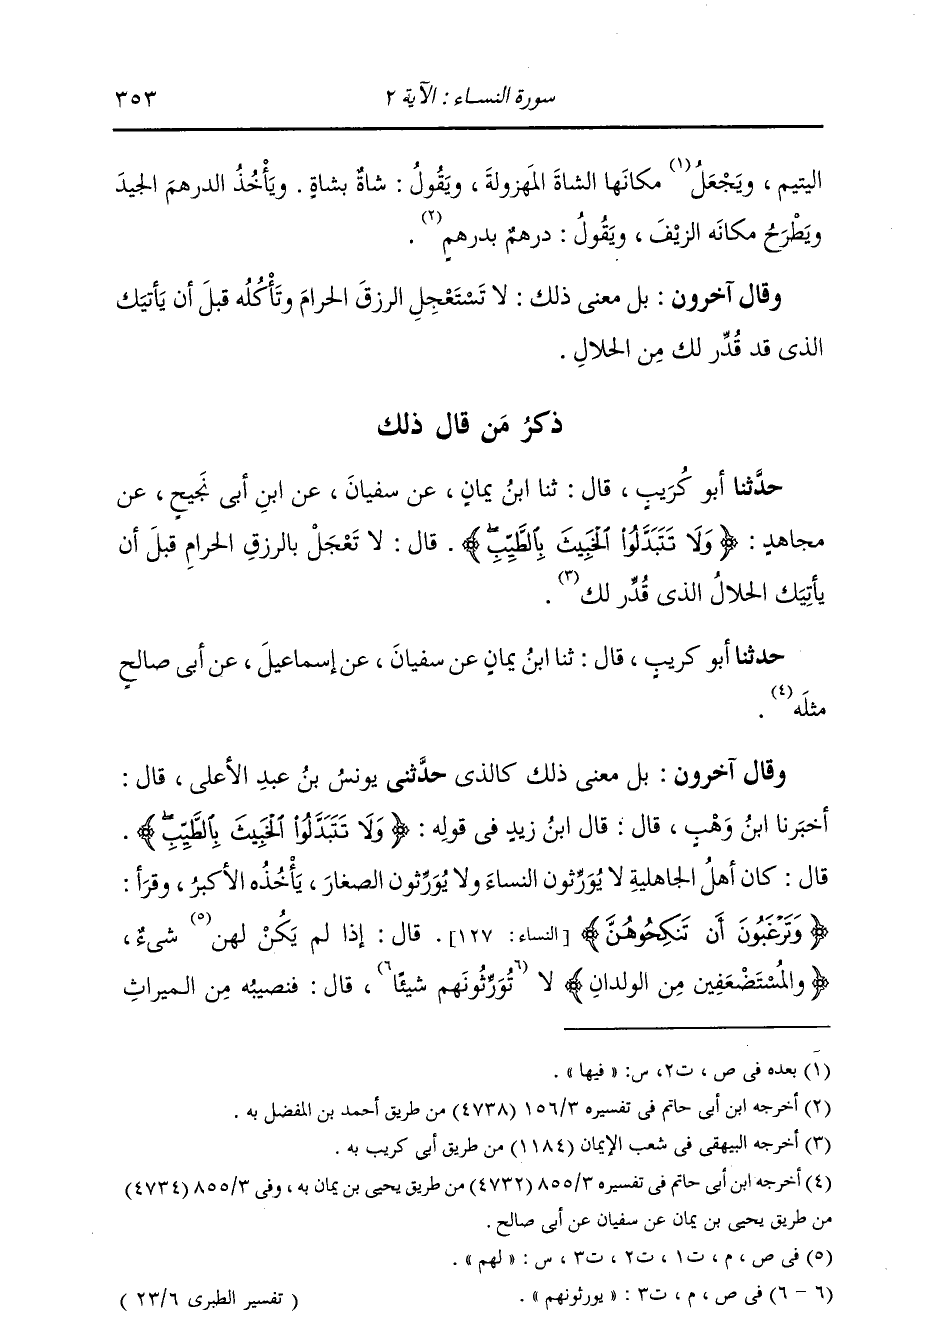 سورة النساء : الآية ٢ ٣٥٣
اليتيم ، ويَجْعَلُ(١) مكانَها الشاةَ المَهزولةَ ، ويَقُولُ : شاةٌ بشاةٍ . ويَأْخُذُ الدرهمَ الجيدَ
ويَطْرَحُ مكانَه الزيْفَ ، ويَقُولُ : درهمٌ بدرهمٍ(٢) .
وقال آخرون : بل معنى ذلك : لا تَسْتَعْجِلِ الرزقَ الحرامَ وتَأْكُلُه قبلَ أن يَأتيَك
الذى قد قُدِّر لك مِن الحلالِ .
ذكرُ مَن قال ذلك
حدَّثنا أبو كُرَيبٍ ، قال : ثنا ابنُ يمانٍ ، عن سفيانَ ، عن ابنِ أبى نَجيحٍ ، عن
مجاهدٍ : ﴿ وَلَا تَتَبَدَّلُوا۟ ٱلْخَبِيثَ بِٱلطَّيِّبِۖ ﴾ . قال : لا تَعْجَلْ بالرزقِ الحرامِ قبلَ أن
يأتِيَك الحلالُ الذى قُدِّر لك(٣) .
حدثنا أبو كريبٍ ، قال : ثنا ابنُ يمانٍ عن سفيانَ ، عن إسماعيلَ ، عن أبى صالحٍ
مثلَه(٤) .
وقال آخرون : بل معنى ذلك كالذى حدَّثنى يونسُ بنُ عبدِ الأعلى ، قال :
أخبَرنا ابنُ وَهْبٍ ، قال : قال ابنُ زيدٍ فى قولِه : ﴿ وَلَا تَتَبَدَّلُوا۟ ٱلْخَبِيثَ بِٱلطَّيِّبِۖ ﴾ .
قال : كان أهلُ الجاهليةِ لا يُوَرِّثون النساءَ ولا يُوَرِّثون الصغارَ ، يَأْخُذُه الأكبرُ ، وقرَأ :
﴿ وَتَرْغَبُونَ أَن تَنكِحُوهُنَّ ﴾ [النساء: ١٢٧] . قال : إذا لم يَكُنْ لهن(٥) شىءٌ ،
﴿ والمُسْتَضْعَفِين مِن الولدانِ ﴾ لا (٦تُوَرِّثُونَهم شيئًا٦) ، قال : فنصيبُه مِن الميراثِ
(١) بعده فى ص ، ت٢، س: « فيها » .
(٢) أخرجه ابن أبى حاتم فى تفسيره ١٥٦/٣ (٤٧٣٨) من طريق أحمد بن المفضل به .
(٣) أخرجه البيهقى فى شعب الإيمان (١١٨٤) من طريق أبى كريب به .
(٤) أخرجه ابن أبى حاتم فى تفسيره ٨٥٥/٣ (٤٧٣٢) من طريق يحيى بن يمان به ، وفى ٨٥٥/٣ (٤٧٣٤)
من طريق يحيى بن يمان عن سفيان عن أبى صالح .
(٥) فى ص ، م ، ت١ ، ت٢ ، ت٣ ، س : « لهم » .
(٦ - ٦) فى ص ، م ، ت٣ : « يورثونهم » . ( تفسير الطبرى ٢٣/٦ )